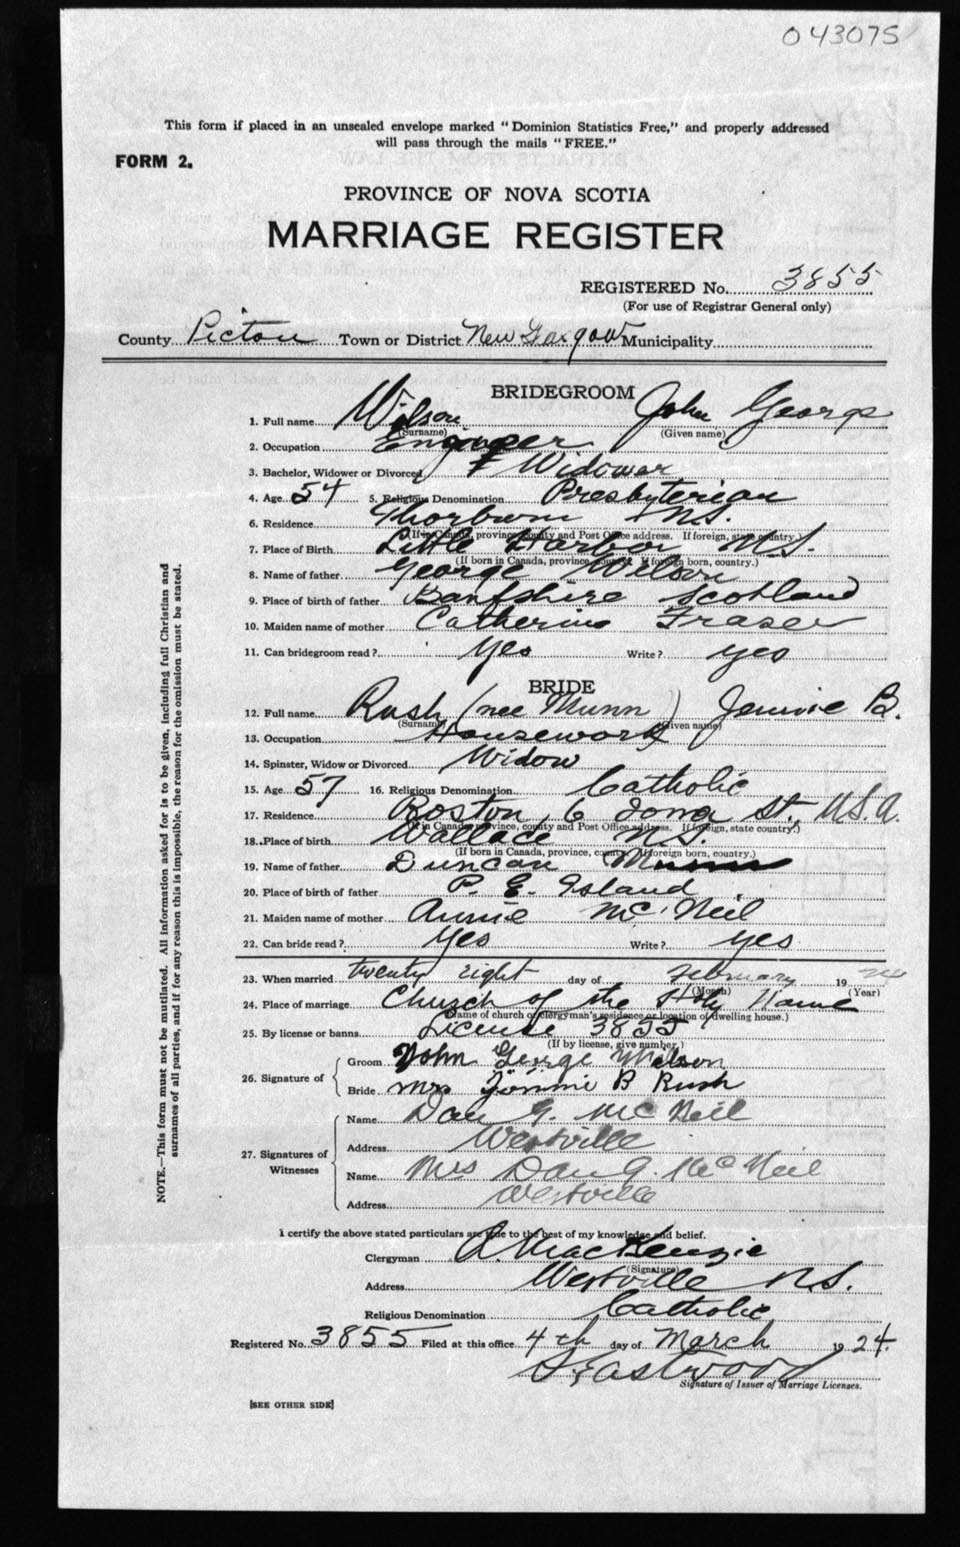 043075
This form if placed in an unsealed envelope marked "Dominion Statistics Free," and properly addressed
will pass through the mails "FREE."
FORM 2.
PROVINCE OF NOVA SCOTIA
MARRIAGE REGISTER
REGISTERED No. 3855
(For use of Registrar General only)
County Pictou Town or District New Glasgow Municipality
BRIDEGROOM
1. Full name Wilson John George
(Surname) (Given name)
2. Occupation Engineer
3. Bachelor, Widower or Divorced Widower
4. Age 54 5. Religious Denomination Presbyterian
6. Residence Thorburn N.S.
(If in Canada, province, county and Post Office address. If foreign, state country.)
7. Place of Birth Little Harbor N.S.
(If born in Canada, province, county. If foreign born, country.)
8. Name of father George Wilson
9. Place of birth of father Banfshire Scotland
10. Maiden name of mother Catherine Fraser
11. Can bridegroom read? Yes Write? yes
BRIDE
12. Full name Rush (nee Munn) Jennie B.
(Surname) (Given name)
13. Occupation Housework
14. Spinster, Widow or Divorced Widow
15. Age 57 16. Religious Denomination Catholic
17. Residence Boston 6 Iona St., U.S.A.
(If in Canada, province, county and Post Office address. If foreign, state country.)
18. Place of birth Wallace N.S.
(If born in Canada, province, county. If foreign born, country.)
19. Name of father Duncan Munn
20. Place of birth of father P. E. Island
21. Maiden name of mother Annie McNeil
22. Can bride read? Yes Write? yes
23. When married twenty eight day of February 1924
(Month) (Year)
24. Place of marriage Church of the Holy Name
(Name of church or clergyman's residence or location of dwelling house.)
25. By license or banns License 3855
(If by license, give number.)
26. Signature of Groom John George Wilson
Bride Mrs Jennie B Rush
27. Signatures of Witnesses
Name Dan G. McNeil
Address Westville
Name Mrs Dan G. McNeil
Address Westville
I certify the above stated particulars are true to the best of my knowledge and belief.
Clergyman R. MacKenzie
(Signature)
Address Westville N.S.
Religious Denomination Catholic
Registered No. 3855 Filed at this office 4th day of March 1924.
Eastwood
Signature of Issuer of Marriage Licenses.
[SEE OTHER SIDE]
NOTE.—This form must not be mutilated. All information asked for is to be given, including full Christian and
surnames of all parties, and if for any reason this is impossible, the reason for the omission must be stated.